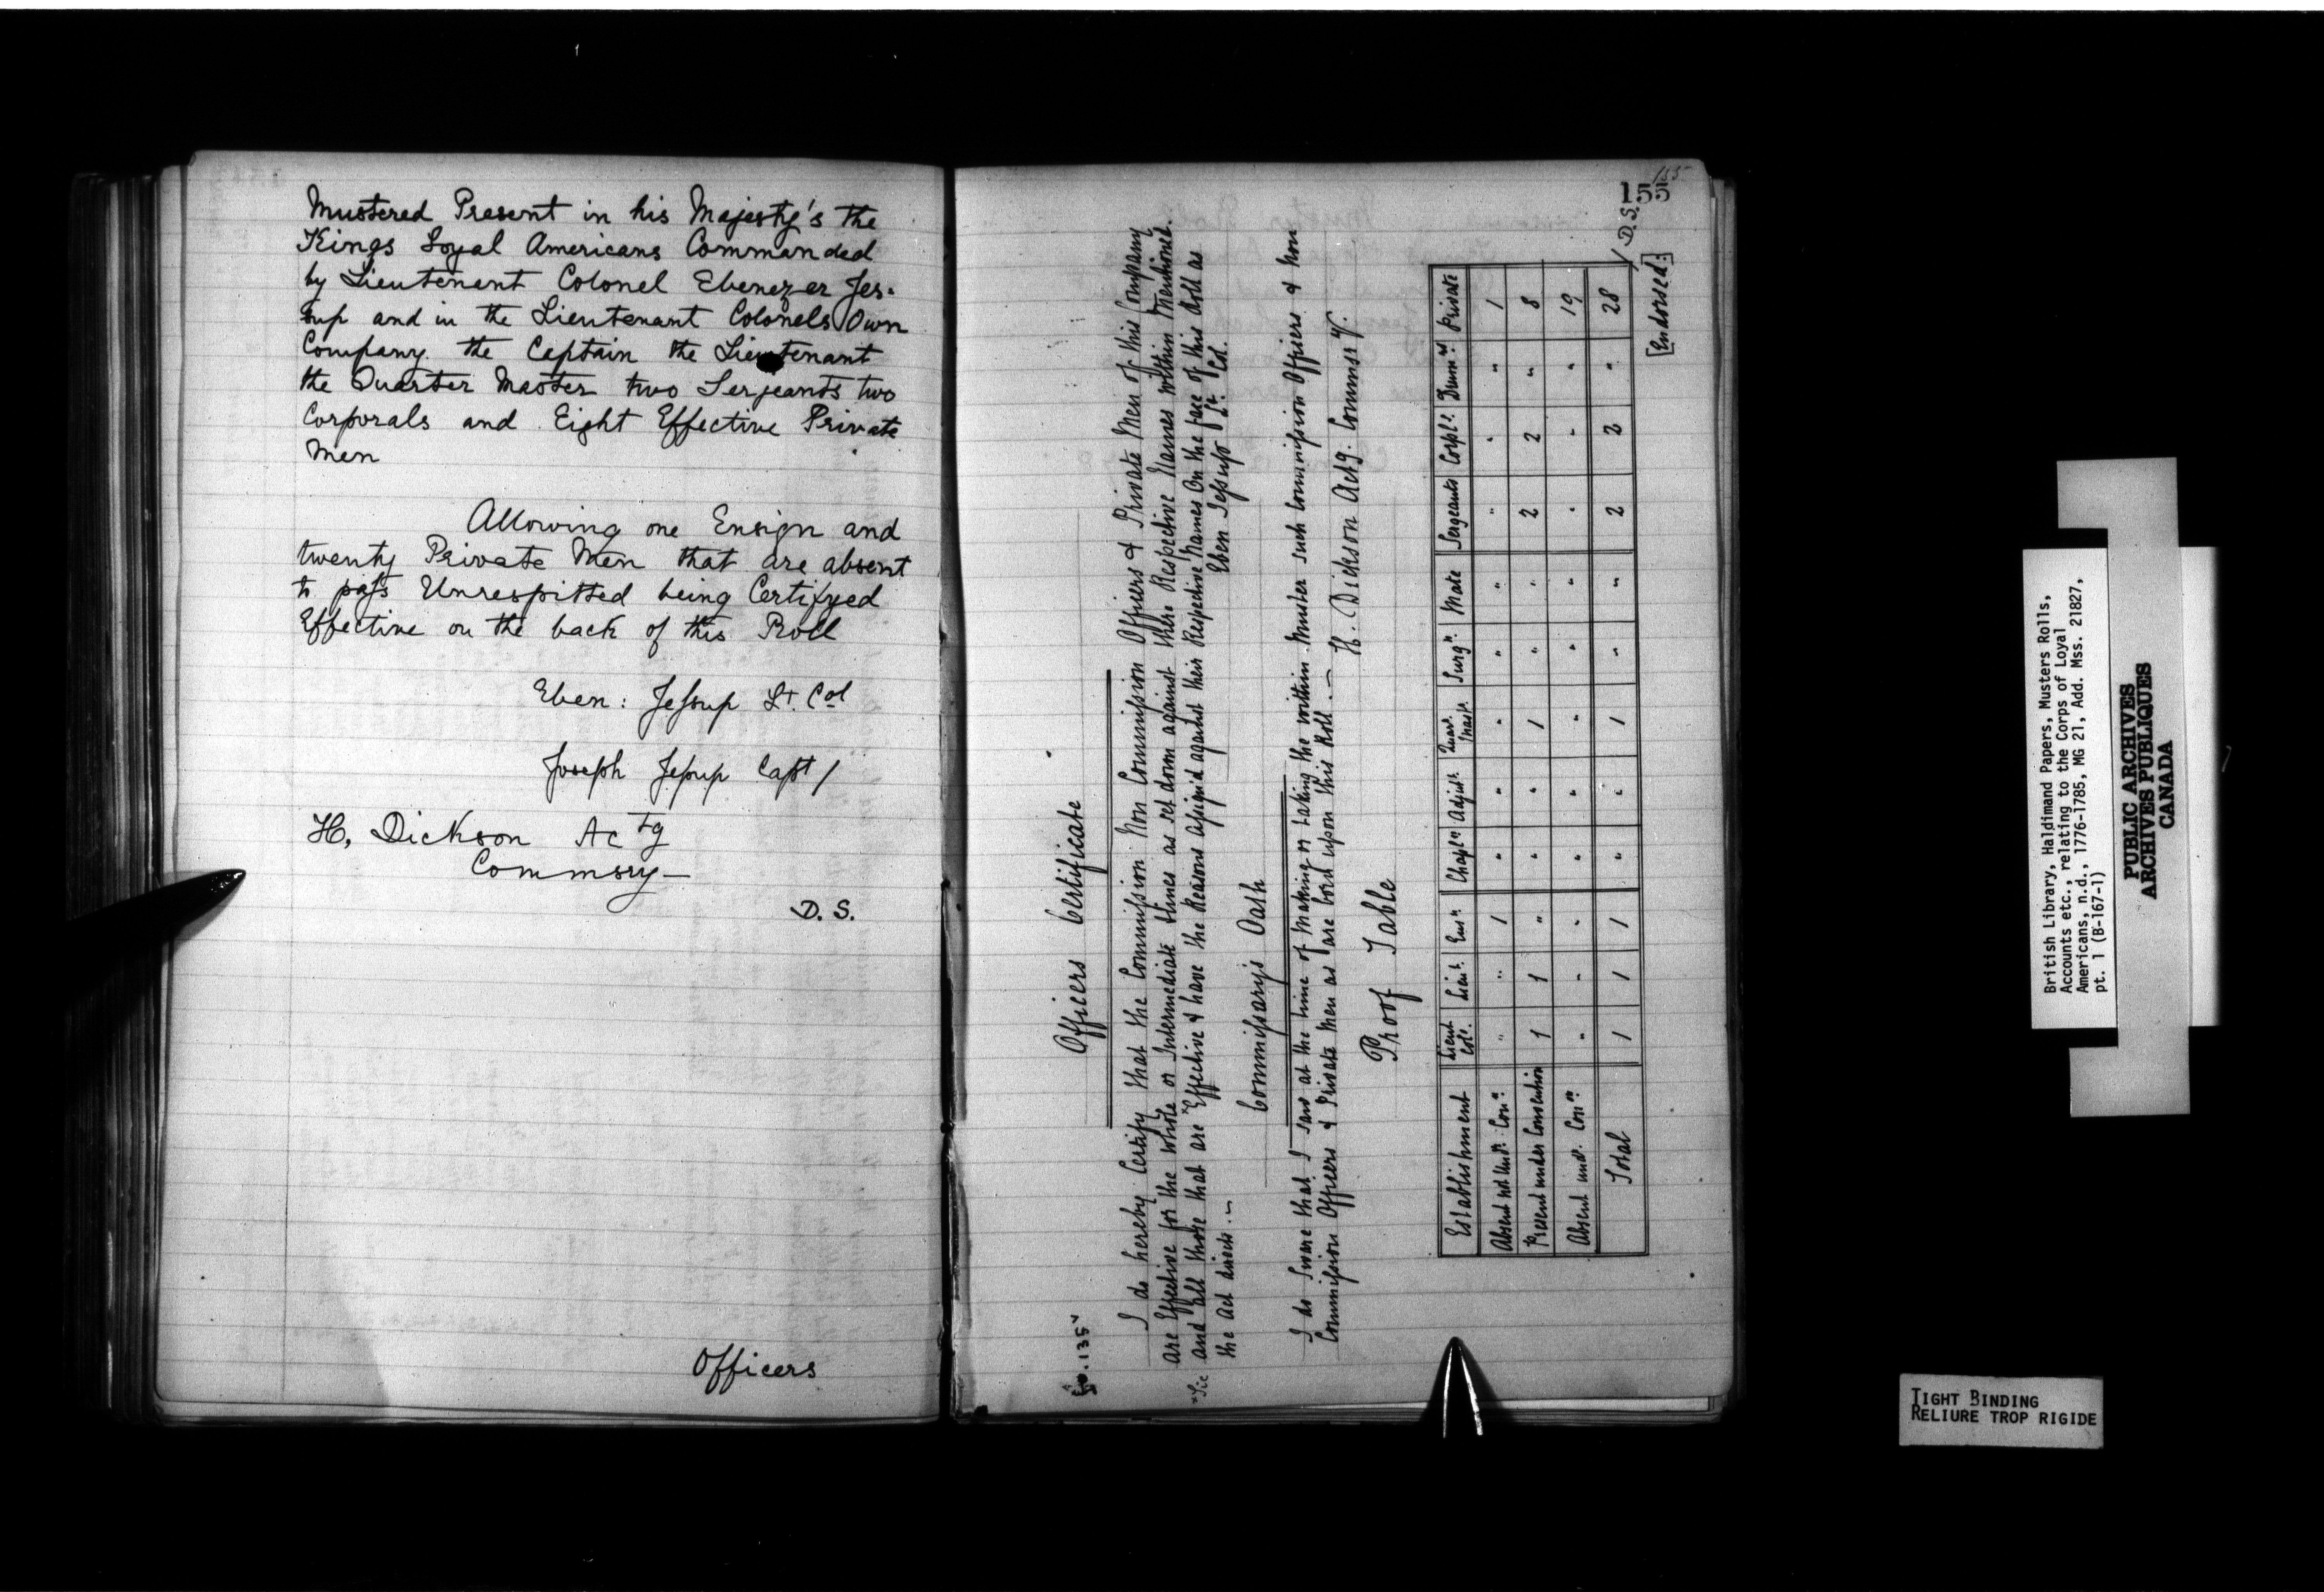 Mustered Present in his Majesty's the
Kings Loyal Americans Commanded
by Lieutenant Colonel Ebenezer Jes-
sup and in the Lieutenant Colonels Own
Company the Captain the Lieutenant
the Quarter Master two Serjeants two
Corporals and Eight Effective Private
Men
Allowing one Ensign and
twenty Private Men that are absent
to pass Unrespitted being Certifyed
Effective on the back of this Roll
Eben: Jessup Lt. Col
Joseph Jessup Capt /
H, Dickson Actg
Commsry—
D. S.
Officers
155
155
fo. 135v
Officers Certificate
I do hereby Certify that the Commission Non Commission Officers & Private Men of this Company
are Effective for the whole or Intermediate times as set down against there Respective Names within Mentioned.
and all those that are "Effective & have the Reasons Assign'd against their Respective Names On the face of this Roll as
"Sic
the Act directs. ~
Eben Jessup Lt. Col.
Commissarys Oath
I do Swear that I saw at the time of Making or taking the within Muster such Commission Officers & Non
Commission Officers & Private Men as are born upon this Roll. ~ H. Dickson Actg. Commsry.
Proof Table
Establishment Lieut Col. Lieut. Ensn Chapln Adjut. Quar. Mast. Surgn. Mate Sergeants Corpl. Drumrs. Private
Absent not Undr. Conn. " " 1 " " " " " " " " 1
Present under Convention 1 1 " " " 1 " " 2 2 " 8
Absent undr. Conn. " " " " " " " " " " " 19
Total 1 1 1 " " 1 " " 2 2 " 28
/ D. S.
[Endorsed:]
British Library, Haldimand Papers, Musters Rolls,
Accounts etc., relating to the Corps of Loyal
Americans, n.d., 1776-1785, MG 21, Add. Mss. 21827,
pt. 1 (B-167-1)
PUBLIC ARCHIVES
ARCHIVES PUBLIQUES
CANADA
TIGHT BINDING
RELIURE TROP RIGIDE